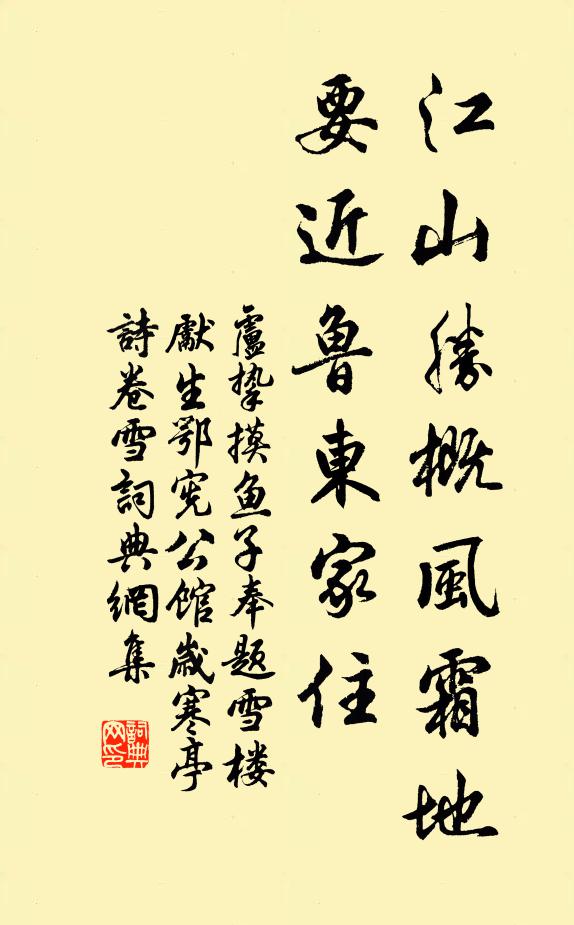 江山勝概風霜地
要近魯東家住
盧摯摸鱼子奉題雪楼
獻生鄂宪公館歲寒亭
詩卷雪詞典網集
詞典
网印